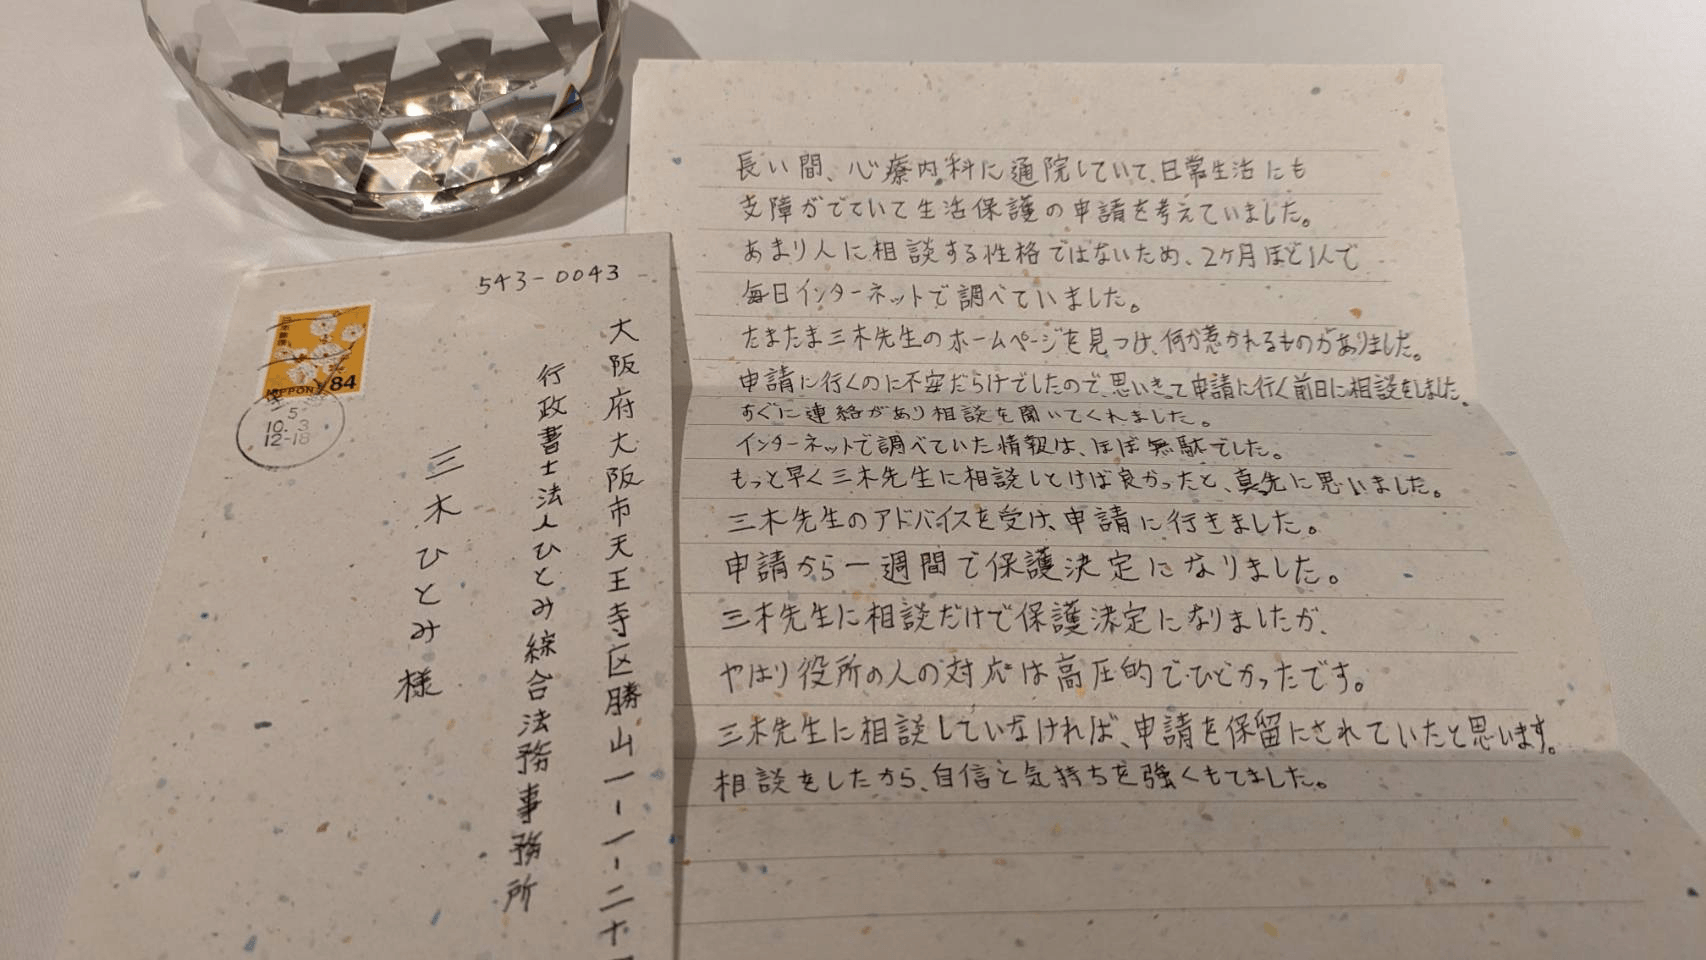 543-0043
大阪府大阪市天王寺区勝山一-一-二十
行政書士法人ひとみ綜合法務事務所
三木ひとみ様
日本郵便
NIPPON 84
5
10. 3
12-18
長い間、心療内科に通院していて、日常生活にも
支障がでていて生活保護の申請を考えていました。
あまり人に相談する性格ではないため、2ヶ月ほど1人で
毎日インターネットで調べていました。
たまたま三木先生のホームページを見つけ、何か惹かれるものがありました。
申請に行くのに不安だらけでしたので、思いきって申請に行く前日に相談をしました。
すぐに連絡があり相談を聞いてくれました。
インターネットで調べていた情報は、ほぼ無駄でした。
もっと早く三木先生に相談しとけば良かったと、真先に思いました。
三木先生のアドバイスを受け、申請に行きました。
申請から一週間で保護決定になりました。
三木先生に相談だけで保護決定になりましたが、
やはり役所の人の対応は高圧的でひどかったです。
三木先生に相談していなければ、申請を保留にされていたと思います。
相談をしたから、自信と気持ちを強くもてました。